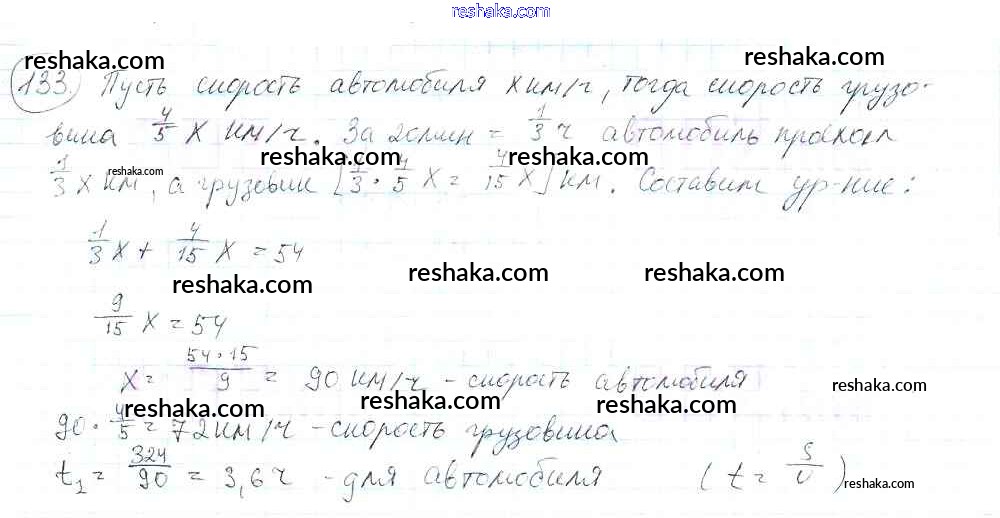 reshaka.com
reshaka.com reshaka.com reshaka.com
133. Пусть скорость автомобиля x км/ч, тогда скорость грузо-
вика 4/5 x км/ч. За 20 мин = 1/3 ч автомобиль проехал
reshaka.com reshaka.com reshaka.com
1/3 x км, а грузовик [1/3 · 4/5 x = 4/15 x] км. Составим ур-ние:
reshaka.com
1/3 x + 4/15 x = 54
reshaka.com reshaka.com reshaka.com
9/15 x = 54
x = 54·15/9 = 90 км/ч - скорость автомобиля
reshaka.com reshaka.com reshaka.com reshaka.com
90 · 4/5 = 72 км/ч - скорость грузовика
t₁ = 324/90 = 3,6 ч - для автомобиля (t = S/v)
reshaka.com
reshaka.com